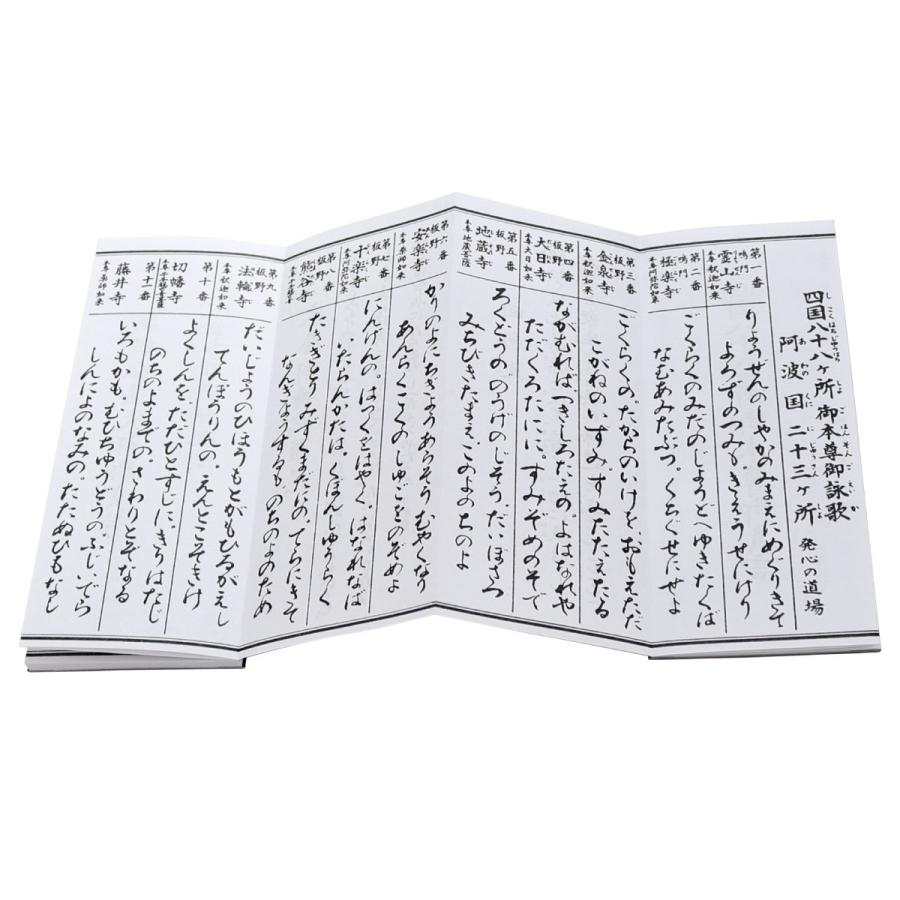 四国八十八ヶ所御本尊御詠歌
阿波国二十三ヶ所 発心の道場
第一番
鳴門
霊山寺
本尊釈迦如来
りょうぜんのしゃかのみまえにめぐりきて
よろずのつみもきえうせにけり
第二番
鳴門
極楽寺
本尊阿弥陀如来
ごくらくのみだのじょうどへゆきたくば
なむあみだぶつ。くちぐせにせよ
第三番
板野
金泉寺
本尊釈迦如来
ごくらくの。たからのいけを、おもえただ
こがねのいずみ。すみたたえたる
第四番
板野
大日寺
本尊大日如来
ながむれば、つきしろたえの。よはなれや
ただくろだにに。すみぞめのそで
第五番
板野
地蔵寺
本尊地蔵菩薩
ろくどうの のうげのじぞう。だいぼさつ
みちびきたまえ、このよのちのよ
第六番
板野
安楽寺
本尊薬師如来
かりのよにちぎょうあらそう むやくなり
あんらくこくの しゅごをのぞめよ
第七番
板野
十楽寺
本尊阿弥陀如来
にんげんの。はっくをはやく。はなれなば
いたらんかたは、くほんじゅうらく
第八番
板野
熊谷寺
本尊千手観音菩薩
たきぎとり みずくまだにの。てらにきて
なんぎょうするも のちのよのため
第九番
板野
法輪寺
本尊釈迦如来
だいじょうのひほうもとがもひるがえし
てんぽうりんの。えんとこそきけ
第十番
切幡寺
本尊千手観音菩薩
よくしんを。ただひとすじに。きりはたじ
のちのよまでの。さわりとぞなる
第十一番
藤井寺
本尊薬師如来
いろもかも。むひちゅうどうの。ふじいでら
しんにょのなみの。たたぬひもなし